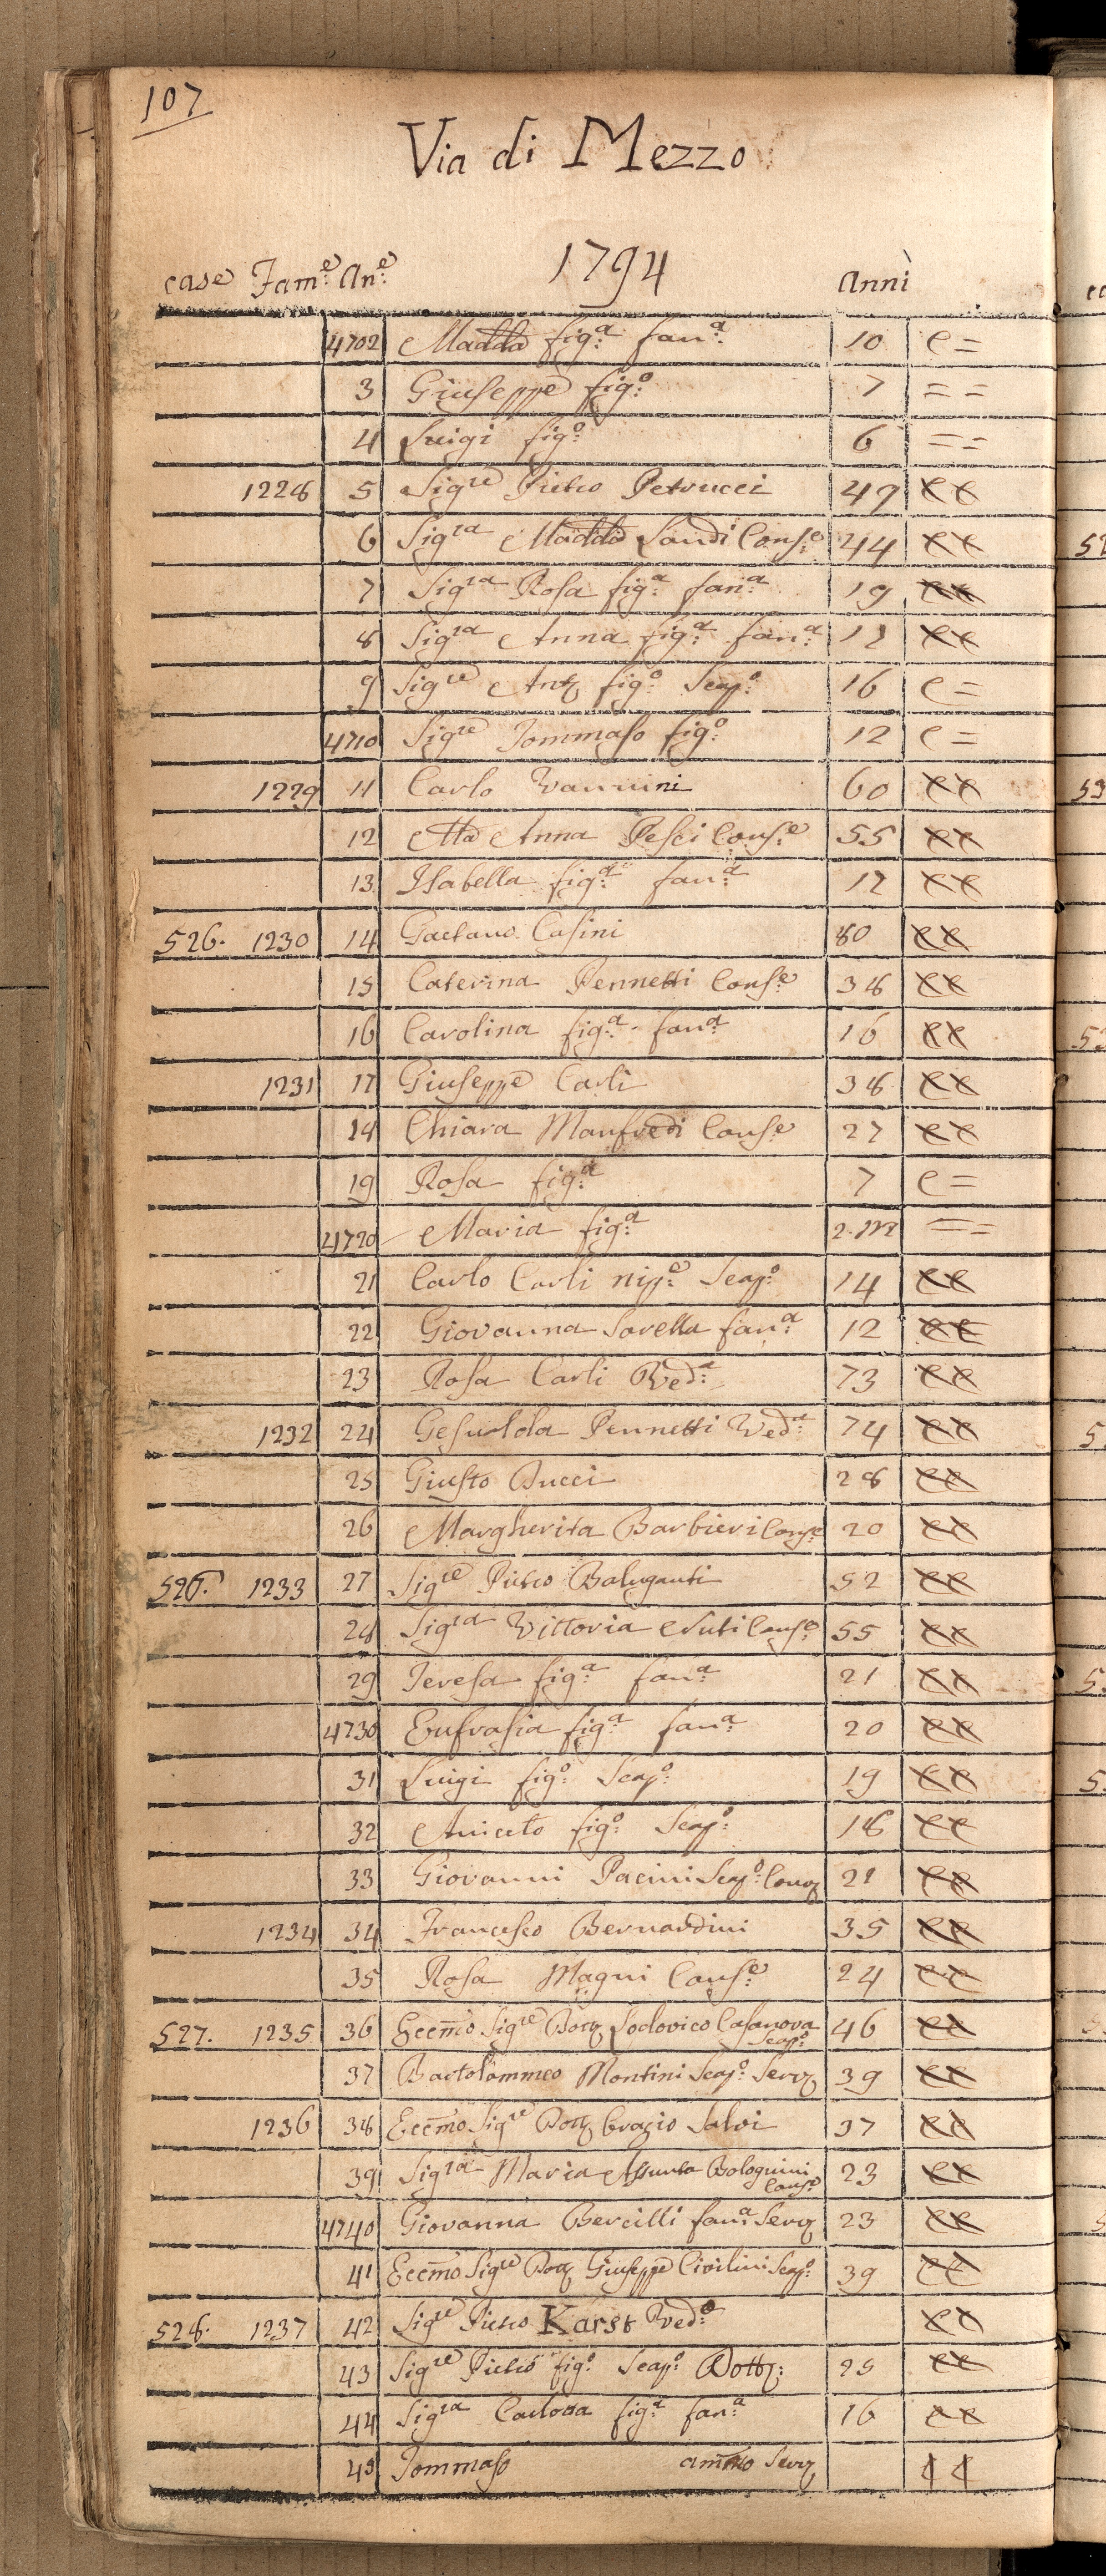 107
Via di Mezzo
1794
case Fam:e An:e Anni
4702 Madda fig:a fan:a 10 C =
3 Giuseppe fig:o 7 = =
4 Luigi fig:o 6 = =
1228 5 Sigre Pietro Petrucci 49 CC
6 Sigra Madda Landi Cons:e 44 CC
7 Sigra Rosa fig:a fan:a 19 CC
8 Sigra Anna fig:a fan:a 17 CC
9 Sigre Anto fig:o Scap:o 16 C =
4710 Sigre Tommaso fig:o 12 C =
1229 11 Carlo Vannini 60 CC
12 Ma Anna Pesci Cons:e 55 CC
13 Isabella fig:a fan:a 17 CC
526. 1230 14 Gaetano Casini 80 CC
15 Caterina Pennetti Cons:e 38 CC
16 Carolina fig:a fan:a 16 CC
1231 17 Giuseppe Carli 38 CC
18 Chiara Manfredi Cons:e 27 CC
19 Rosa fig:a 7 C =
4720 Maria fig:a 2.m = =
21 Carlo Carli nip:e Scap:o 14 CC
22 Giovanna Sorella fan:a 12 CC
23 Rosa Carli Ved:a 73 CC
1232 24 Gesualda Pennetti Ved:a 74 CC
25 Giusto Bucci 28 CC
26 Margherita Barbieri Cons:e 20 CC
526. 1233 27 Sigre Pietro Baluganti 52 CC
28 Sigra Vittoria Nuti Cons:e 55 CC
29 Teresa fig:a fan:a 21 CC
4730 Eufrasia fig:a fan:a 20 CC
31 Luigi fig:o Scap:o 19 CC
32 Aniceto fig:o Scap:o 18 CC
33 Giovanni Pacini Scap:o 21 CC
1234 34 Francesco Bernardini 35 CC
35 Rosa Magni Cons:e 24 CC
527. 1235 36 Eccmo Sigre Dott Lodovico Casanova Scap:o 46 CC
37 Bartolommeo Montini Scap:o Serv 39 CC
1236 38 Eccmo Sigre Dott Orazio Salvi 37 CC
39 Sigra Maria Assunta Bolognini Cons:e 23 CC
4740 Giovanna Bercilli fan:a Serv 23 CC
41 Eccmo Sigre Dott Giuseppe Civilini Scap:o 39 CC
528. 1237 42 Sigre Pietro Karst Ved:o CC
43 Sigre Pietro fig:o Scap:o Dott: 25 CC
44 Sigra Carlotta fig:a fan:a 16 CC
45 Tommaso ammo Serv